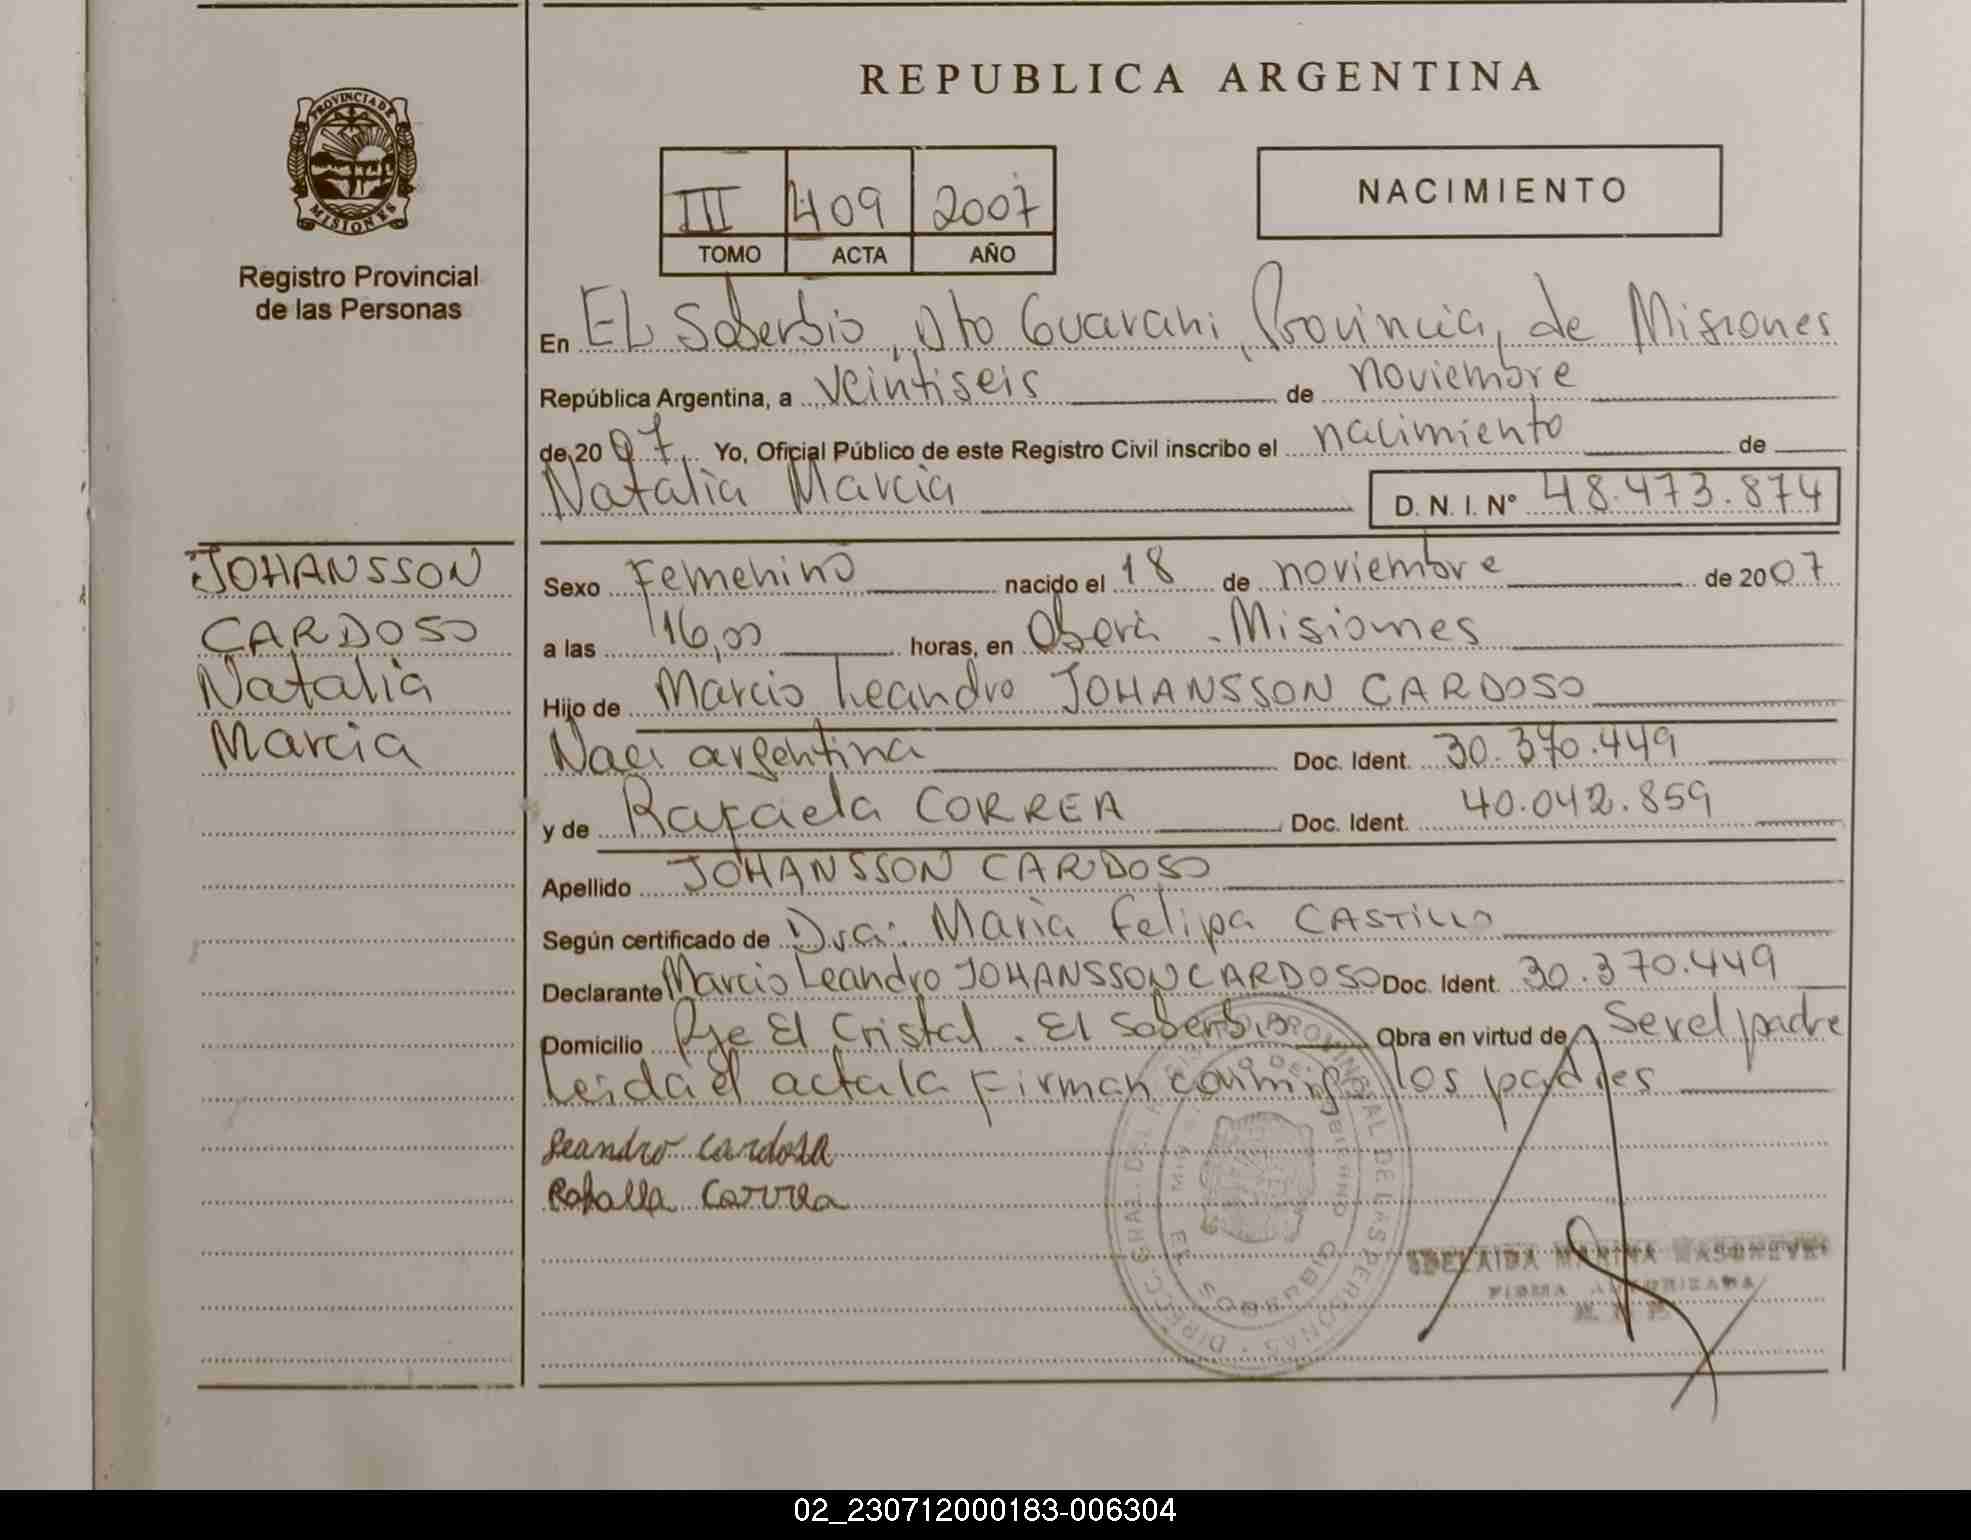 REPUBLICA ARGENTINA
PROVINCIA DE
MISIONES
Registro Provincial
de las Personas
III 409 2007
TOMO ACTA AÑO
NACIMIENTO
En EL Soberbio, Dto Guarani, Provincia, de Misiones
República Argentina, a veintiseis de noviembre
de 2007 Yo, Oficial Público de este Registro Civil inscribo el nacimiento de
Natalia Marcia D. N. I. N° 48.473.874
JOHANSSON
CARDOSO
Natalia
Marcia
Sexo Femenino nacido el 18 de noviembre de 2007
a las 16,00 horas, en Oberá - Misiones
Hijo de Marcio Leandro JOHANSSON CARDOSO
Nac. argentina Doc. Ident. 30.370.449
y de Rafaela CORREA Doc. Ident. 40.042.859
Apellido JOHANSSON CARDOSO
Según certificado de Dra: Maria Felipa CASTILLO
Declarante Marcio Leandro JOHANSSON CARDOSO Doc. Ident. 30.370.449
Domicilio Pje El Cristal. El Soberbio Obra en virtud de Ser el padre
Leida el acta la Firman conmigo los padres
Leandro Cardoso
Rafaela Correa
DIRECC. GRAL. DEL PROVINCIAL DE LAS PERSONAS
ADELAIDA MARINA
FIRMA AUTORIZADA
02_230712000183-006304